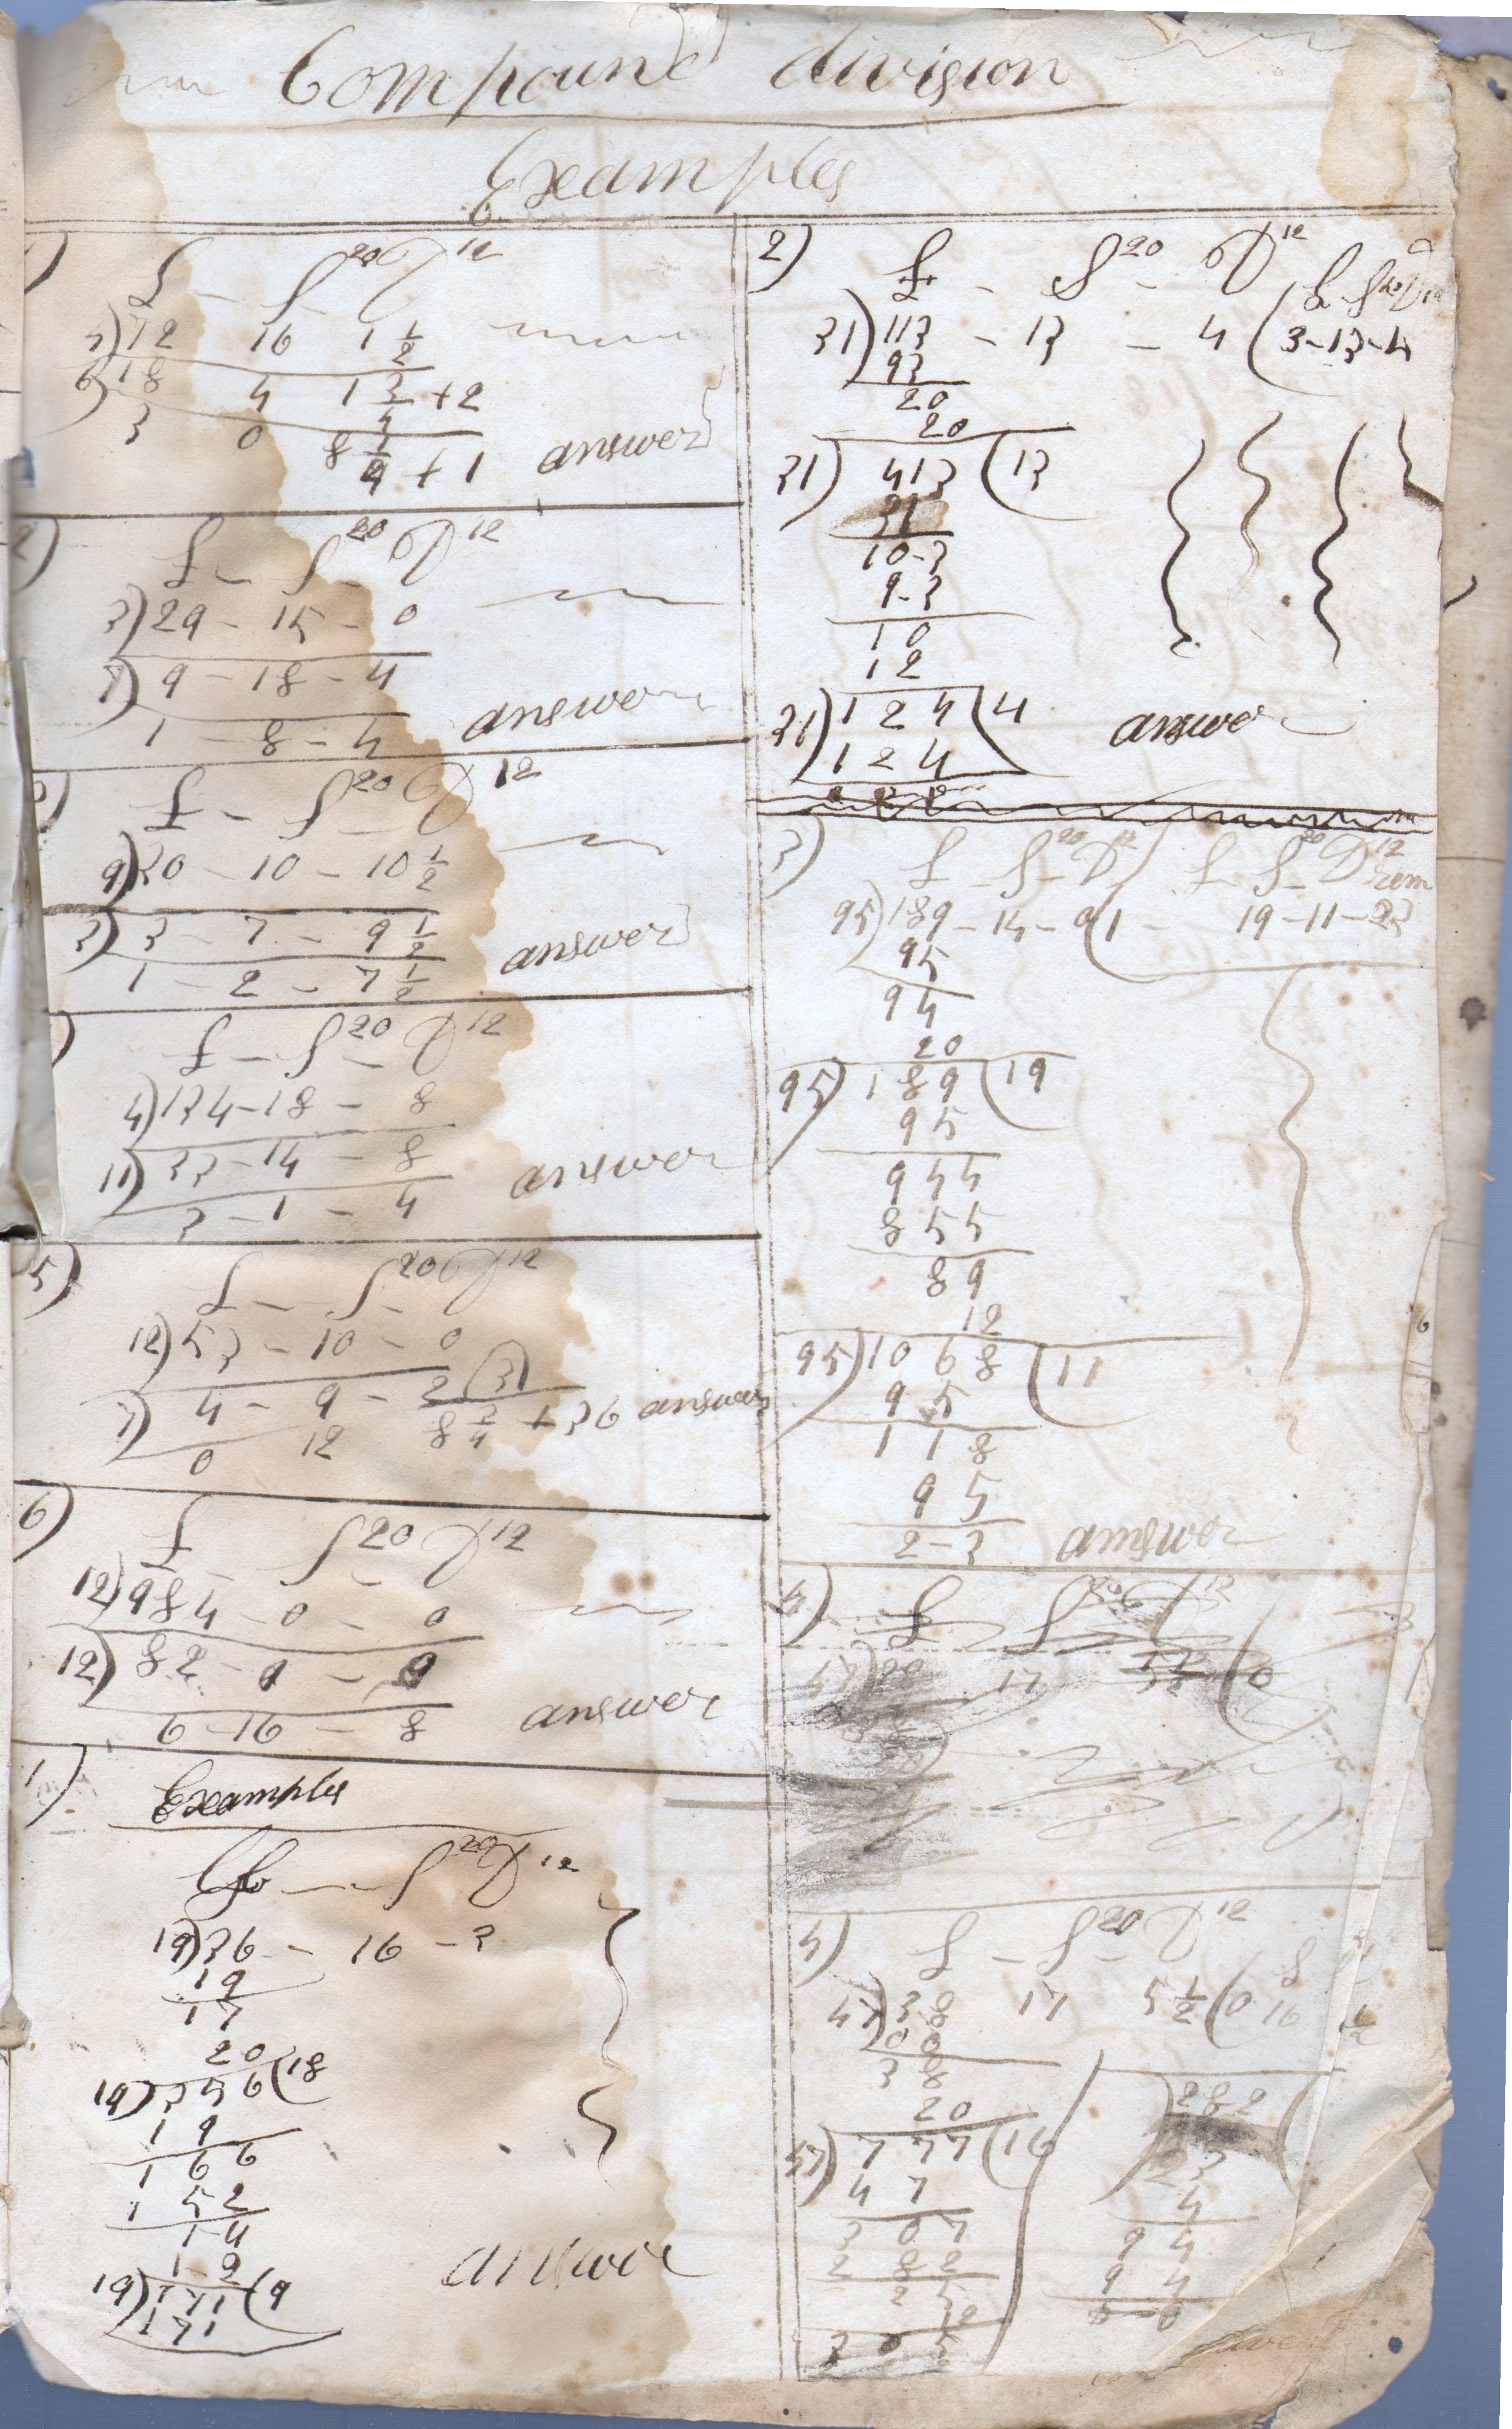 Compound division
Examples
£ - S 20 D 12
7) 72 16 1 1/2
6) 18 4 1 3/4 + 2
3 0 8 1/4 + 1 answer
£ - S 20 D 12
3) 29 - 15 - 0
7) 9 - 18 - 4
1 - 8 - 4 answer
£ - S 20 D 12
9) 30 - 10 - 10 1/2
3) 3 - 7 - 9 1/2
1 - 2 - 7 1/2 answer
£ - S 20 - D 12
4) 134 - 18 - 8
11) 33 - 14 - 8
3 - 1 - 4 answer
5) £ - S 20 D 12
12) 53 - 10 - 0
7) 4 - 9 - 2
0 12 8 3/4 + 36 answer
6) £ - S 20 D 12
12) 984 - 0 - 0
12) 82 - 0 - 0
6 - 16 - 8 answer
1) Examples
S 20 D 12
19) 36 - 16 - 3
19
17
20
19) 356 (18
19
166
152
14
12
19) 171 (9
171
answer
2) £ - S 20 - D 12 (£ S 20 D 12
31) 113 - 13 - 4 (3 - 13 - 4
93
20
20
31) 413 (13
31
10-3
9-3
10
12
31) 124 (4
124 answer
3) £ - S 20 - D 12 £ S 20 - D 12 rem
95) 189 - 14 - 9 (1 - 19 - 11 - 23
95
94
20
95) 189 (19
95
944
855
89
12
95) 1068 (11
95
118
95
2-3 answer
4) £ S 20 D 12
17
4) £ - S 20 - D 12
47) 38 17 5 1/2 (0 16
00
38
20
47) 777 (16
47
307
282
25
12
305
282
23
4
94
94
0-0